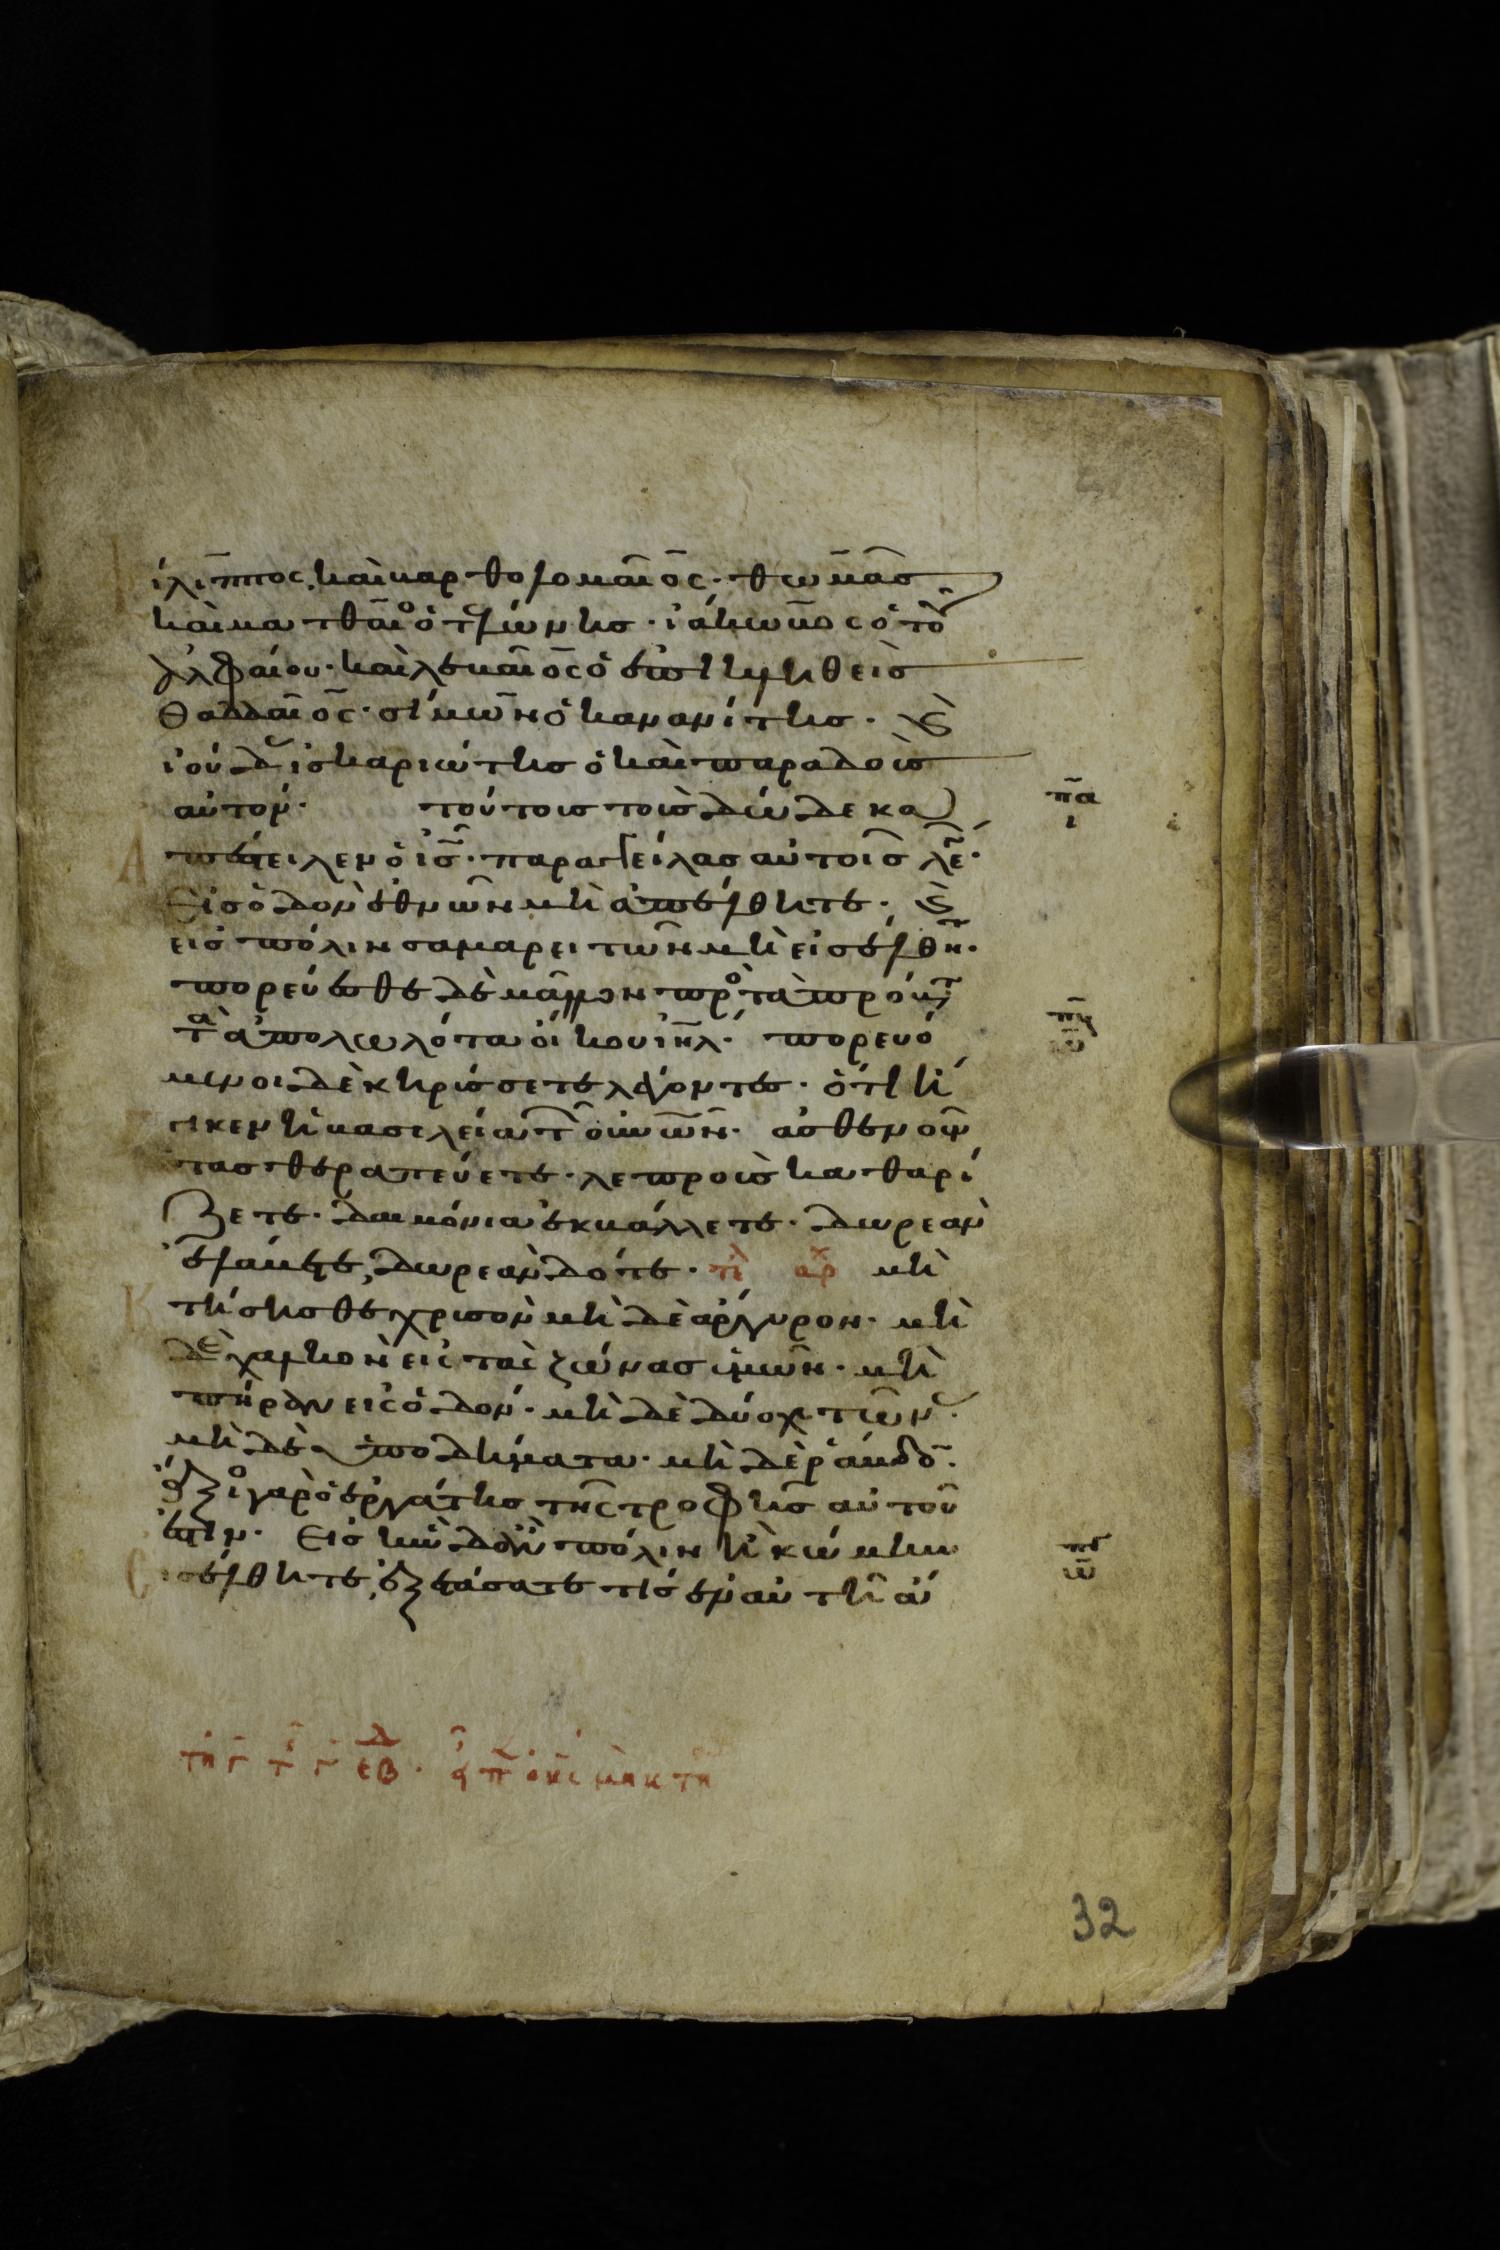 ίλιππος, καὶ βαρθολομαῖος· θωμᾶς
καὶ ματθαῖο ὁ τελώνης· ἰάκωβος ὁ τοῦ
ἀλφαίου· καὶ λεββαῖος ὁ ἐπικληθεὶς
θαδδαῖος· σίμων ὁ κανανίτης· καὶ
ἰούδ ἰσκαριώτης ὁ καὶ παραδοὺς
αὐτόν· τούτοις τοὺς δώδεκα
πέστειλεν ὁ ις· παραγγείλας αὐτοῖς λε·
Εἰς ὁδὸν ἐθνῶν μὴ ἀπέλθητε· καὶ
εἰς πόλιν σαμαρειτῶν μὴ εἰσέλθητ·
πορεύεσθε δὲ μᾶλλον πρὸ τὰ πρόβατ
τὰ ἀπολωλότα οἴκου ιηλ· πορευό
μενοι δὲ κηρύσσετε λέγοντες· ὅτι ἤ
γικεν ἡ βασιλεία τ οὐνων· ἀσθενοῦν
τας θεραπεύετε· λεπροὺς καθαρί
ζετε· δαιμόνια ἐκβάλλετε· δωρεὰν
ἐλάβετε, δωρεὰν δότε· τλ αρχ μὴ
κτήσησθε χρυσὸν μὴ δὲ ἄργυρον· μὴ
δὲ χαλκὸν εἰς τὰς ζώνας ὑμῶν· μὴ
πήραν εἰς ὁδόν· μὴ δὲ δύο χιτῶν·
μὴ δὲ ὑποδήματα· μὴ δὲ ῥάβδο·
ἄξιο γὰρ ὁ ἐργάτης τῆς τροφῆς αὐτοῦ
ἐστιν· Εἰς ἣν δ ἂν πόλιν ἢ κώμην
ισέλθητε, ἐξετάσατε τίς ἐν αὐτῇ ἄ
πα
ι
πγ
32